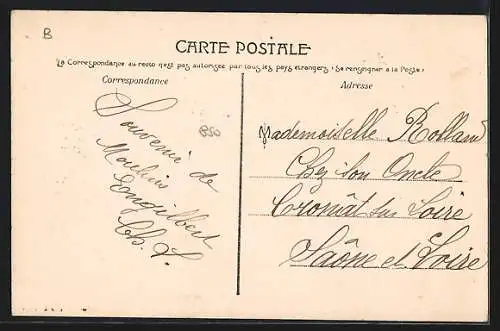 B
CARTE POSTALE
La Correspondance au recto n'est pas autorisée par tous les pays étrangers (Se renseigner à la Poste)
Correspondance
Adresse
850
Souvenir de
Moulins
Engilbert
Ch. L.
Mademoiselle Rolland
Chez son Oncle
Cronat sur Loire
Saône et Loire